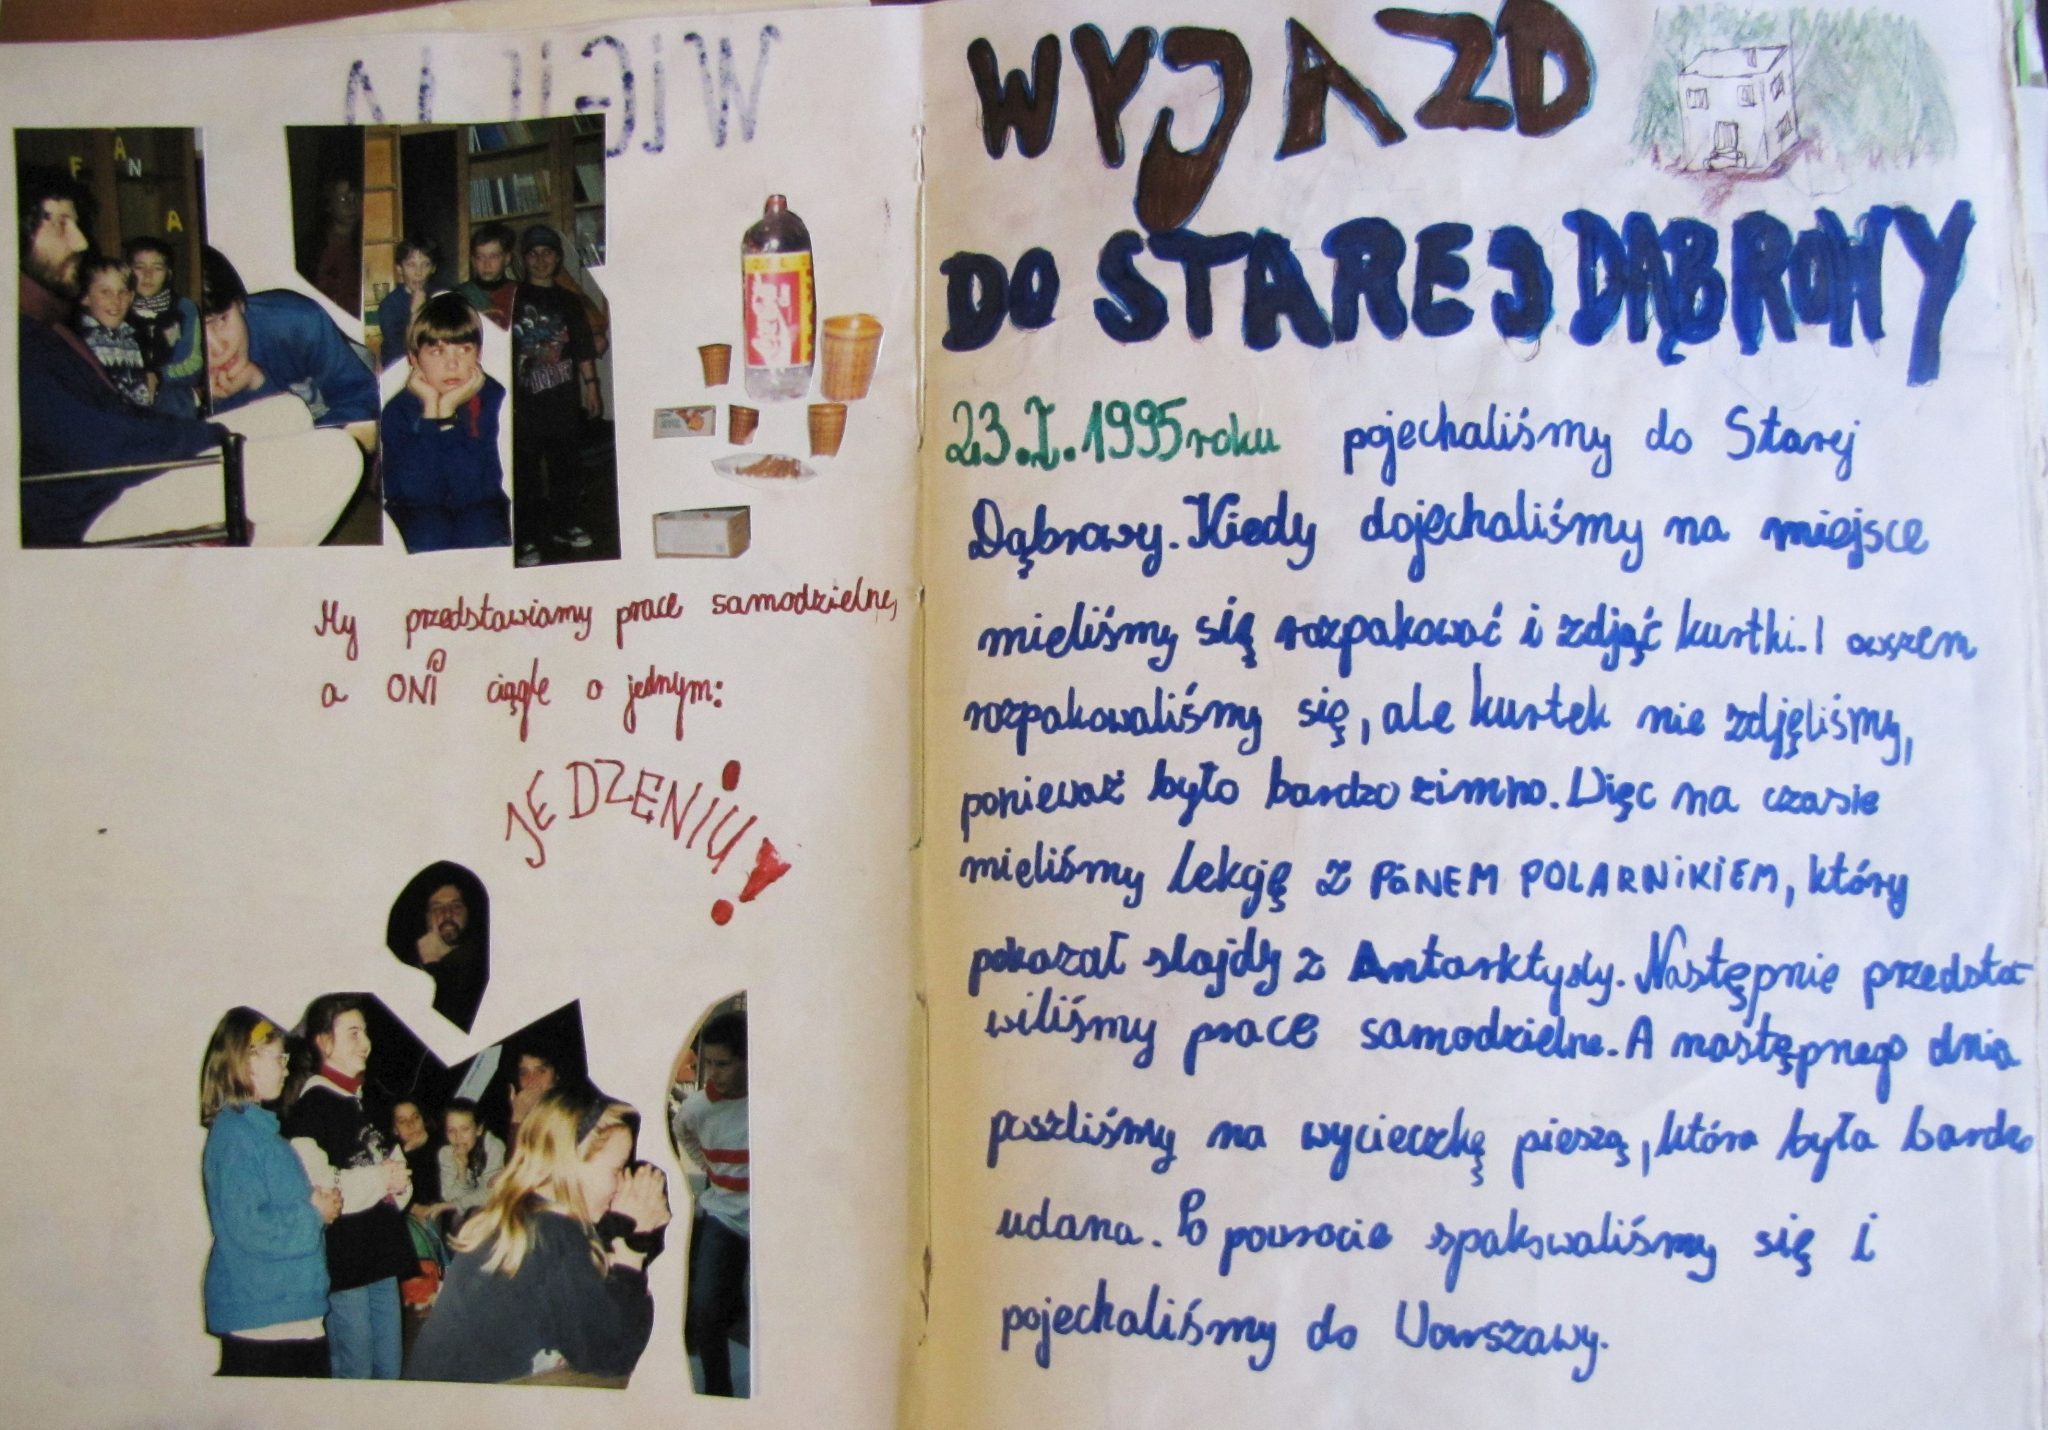 F A N A
My przedstawiamy prace samodzielne,
a ONI ciągle o jednym:
JEDZENIU!
WYJAZD
DO STAREJ DĄBROWY
23.I.1995 roku pojechaliśmy do Starej
Dąbrowy. Kiedy dojechaliśmy na miejsce
mieliśmy się rozpakować i zdjąć kurtki. I owszem
rozpakowaliśmy się, ale kurtek nie zdjęliśmy,
ponieważ było bardzo zimno. Więc na czasie
mieliśmy lekcję z PANEM POLARNIKIEM, który
pokazał slajdy z Antarktydy. Następnie przedsta-
wiliśmy prace samodzielne. A następnego dnia
poszliśmy na wycieczkę pieszą, która była bardzo
udana. Po powrocie spakowaliśmy się i
pojechaliśmy do Warszawy.